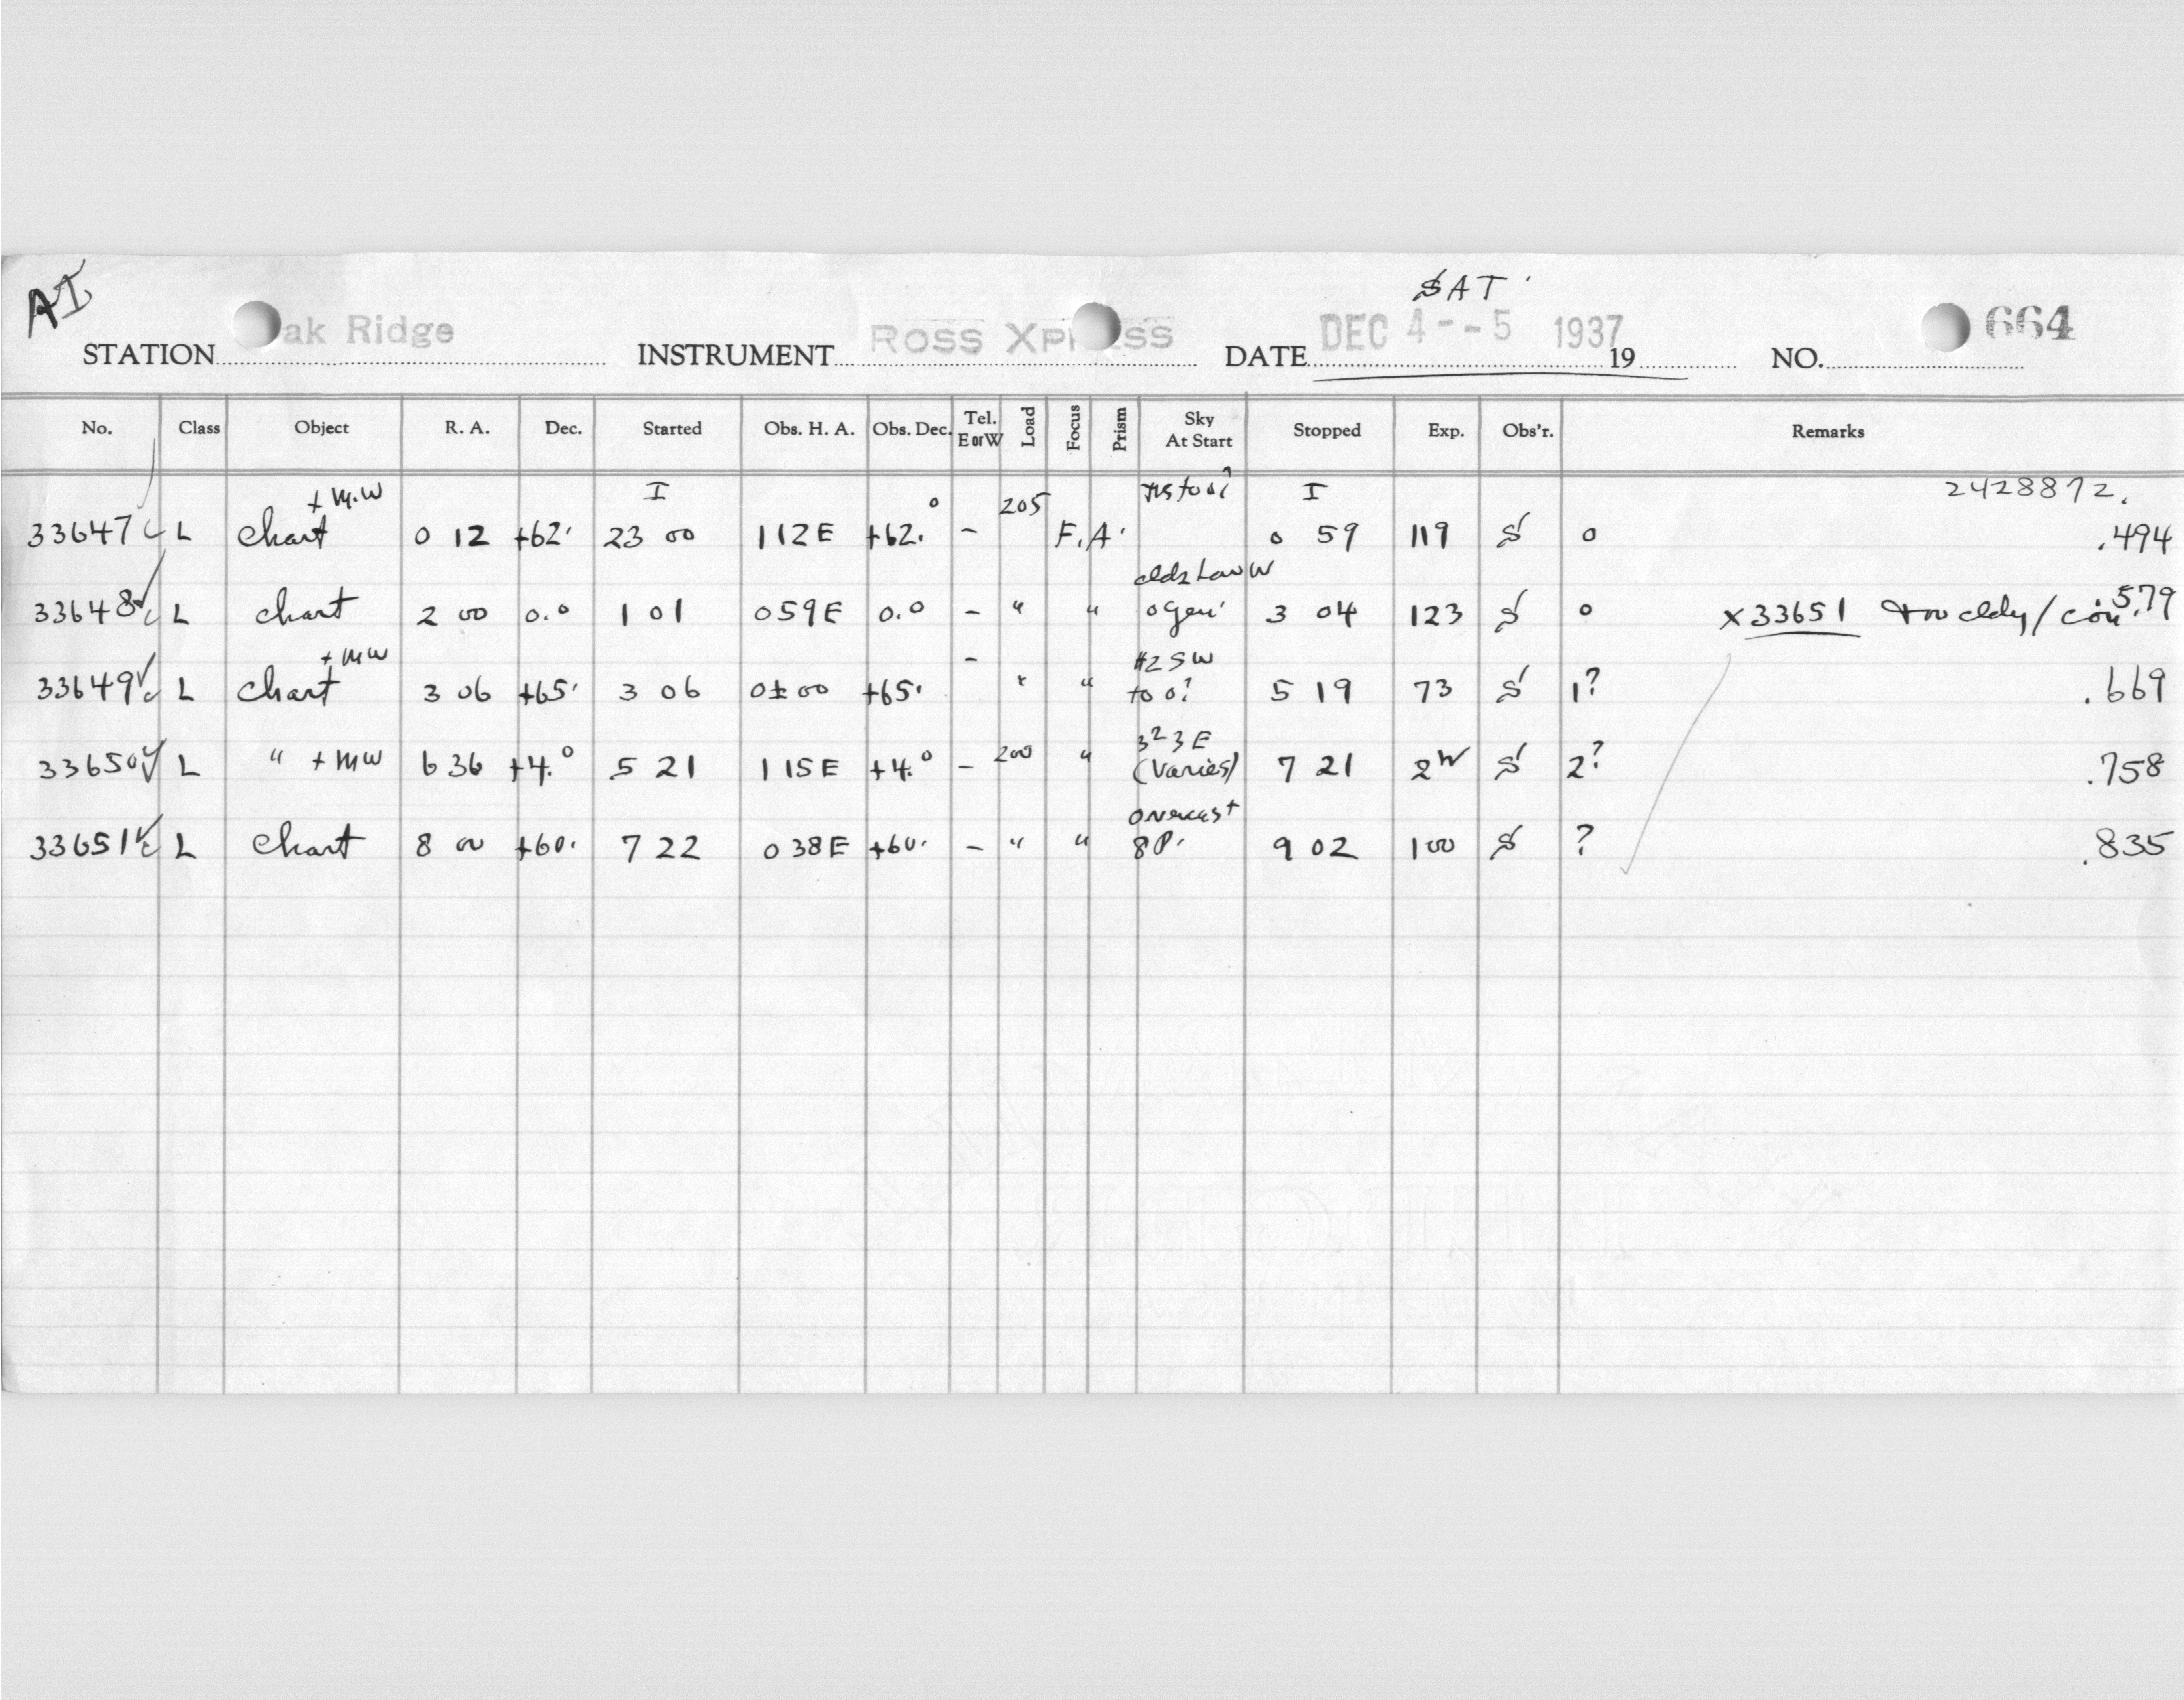 AI
SAT.
STATION Oak Ridge INSTRUMENT ROSS XPRESS DATE DEC 4--5 1937 19 NO. 664
No. Class Object R. A. Dec. Started Obs. H. A. Obs. Dec. Tel. E or W Load Focus Prism Sky At Start Stopped Exp. Obs'r. Remarks
+ M.W I 205 I 2428872.
33647 L chart 0 12 +62. 23 00 112E +62.° - F.A. 0 59 119 S 0 .494
clds Low W
33648 L chart 2 00 0.0 1 01 059E 0.0 - " " 3 04 123 S 0 x 33651 .579
+ MW #2 SW
33649 L chart 3 06 +65. 3 06 0±00 +65. - " " to 0? 5 19 73 S 1? .669
33650 L " + MW 6 36 +4.° 5 21 115E +4.° - 200 " 323E (Varies) 7 21 S 2? .758
overcast
33651 L chart 8 00 +60. 7 22 038E +60. - " " 8P. 9 02 100 S ? .835